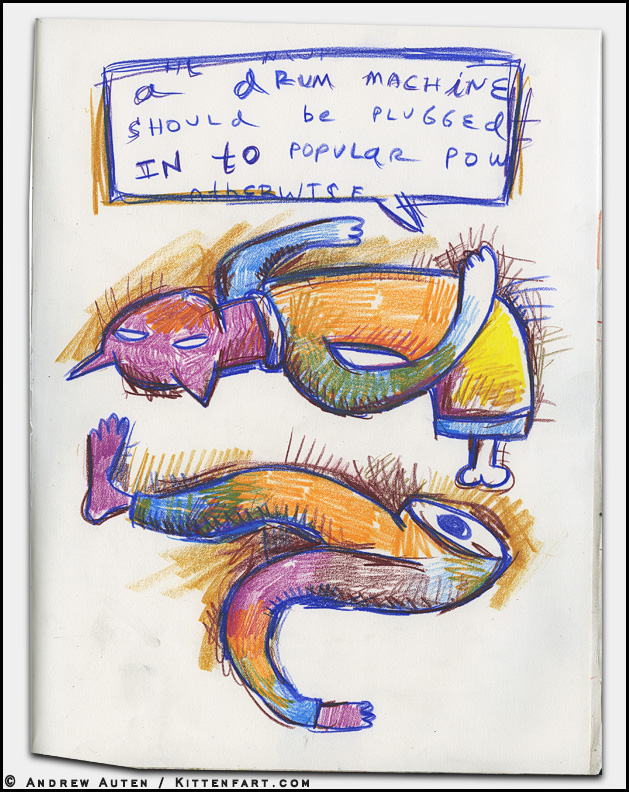 a dRUM MACHiNE
SHOULd be PLUGGEd
IN to POPULAR POW
otHERWISE
© ANDREW AUTEN / KITTENFART.COM